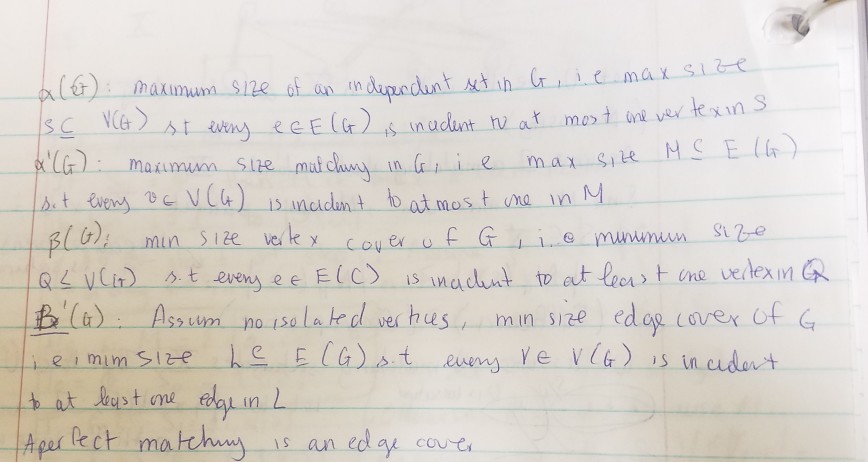 α(G): maximum size of an independent set in G, i.e max size
S ⊆ V(G) st every e∈E(G) is incident to at most one vertex in S
α'(G): maximum size matching in G, i.e max size M ⊆ E(G)
s.t every v ∈ V(G) is incident to at most one in M
β(G): min size vertex cover of G, i.e minimum size
Q ≤ V(G) s.t every e ∈ E(C) is incident to at least one vertex in Q
B'(G): Assum no isolated vertices, min size edge cover of G
i.e, mim size L ⊆ E(G) s.t every v ∈ V(G) is incident
to at least one edge in L
A perfect matching is an edge cover